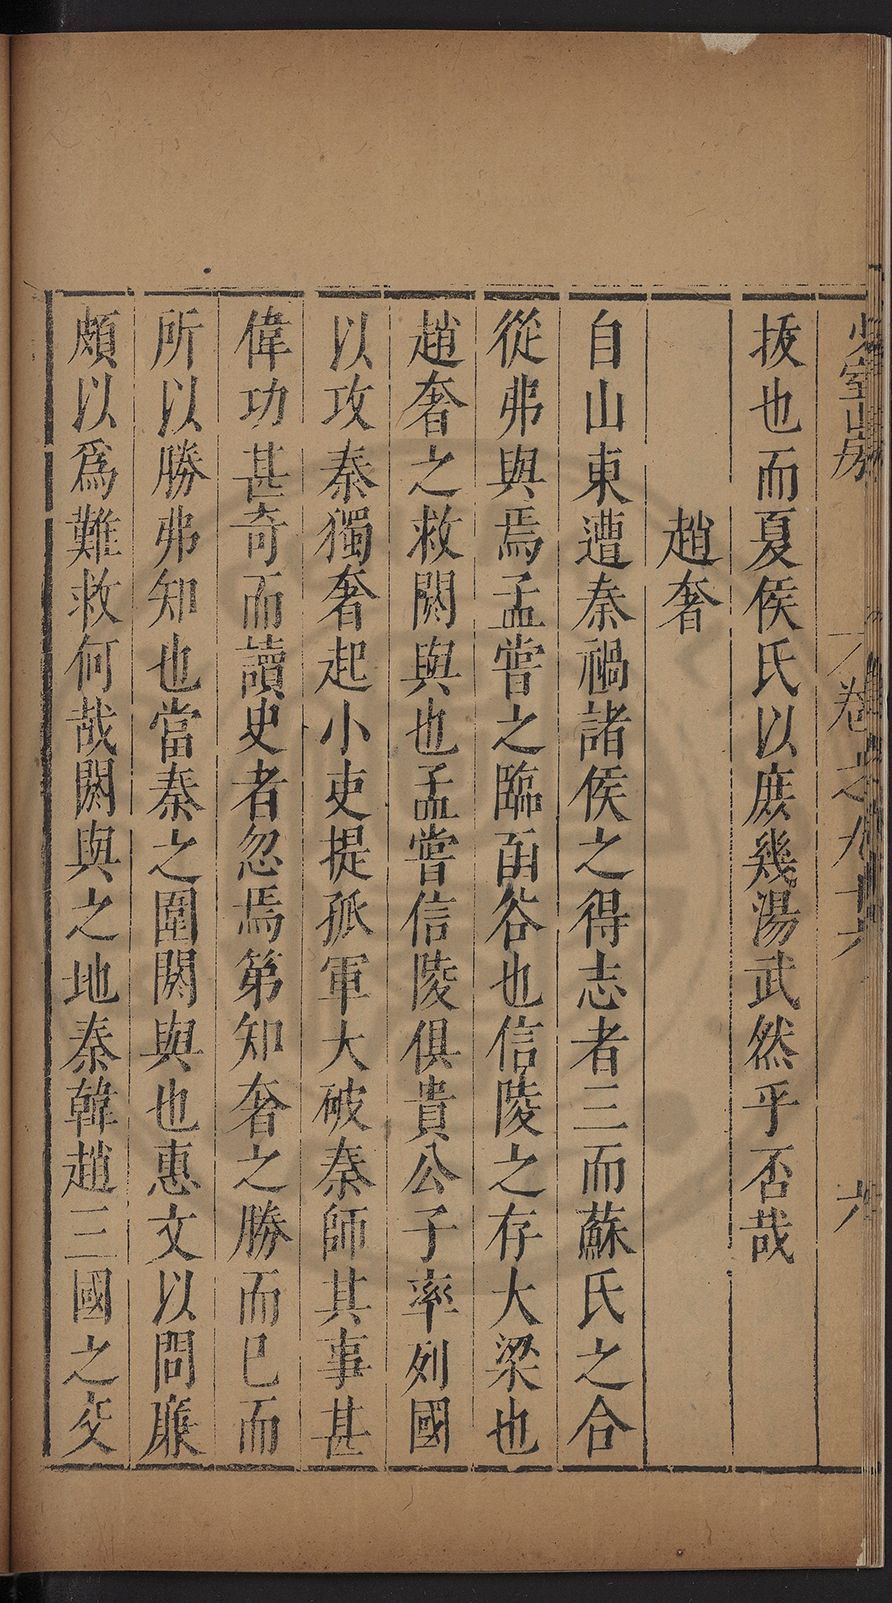 少室山房 卷之九十六 六
扳也而夏侯氏以庶幾湯武然乎否哉
趙奢
自山東遭秦禍諸侯之得志者三而蘇氏之合
從弗與焉孟嘗之臨函谷也信陵之存大梁也
趙奢之救閼與也孟嘗信陵俱貴公子率列國
以攻秦獨奢起小吏提孤軍大破秦師其事甚
偉功甚奇而讀史者忽焉第知奢之勝而已而
所以勝弗知也當秦之圍閼與也惠文以問廉
頗以爲難救何哉閼與之地秦韓趙三國之交